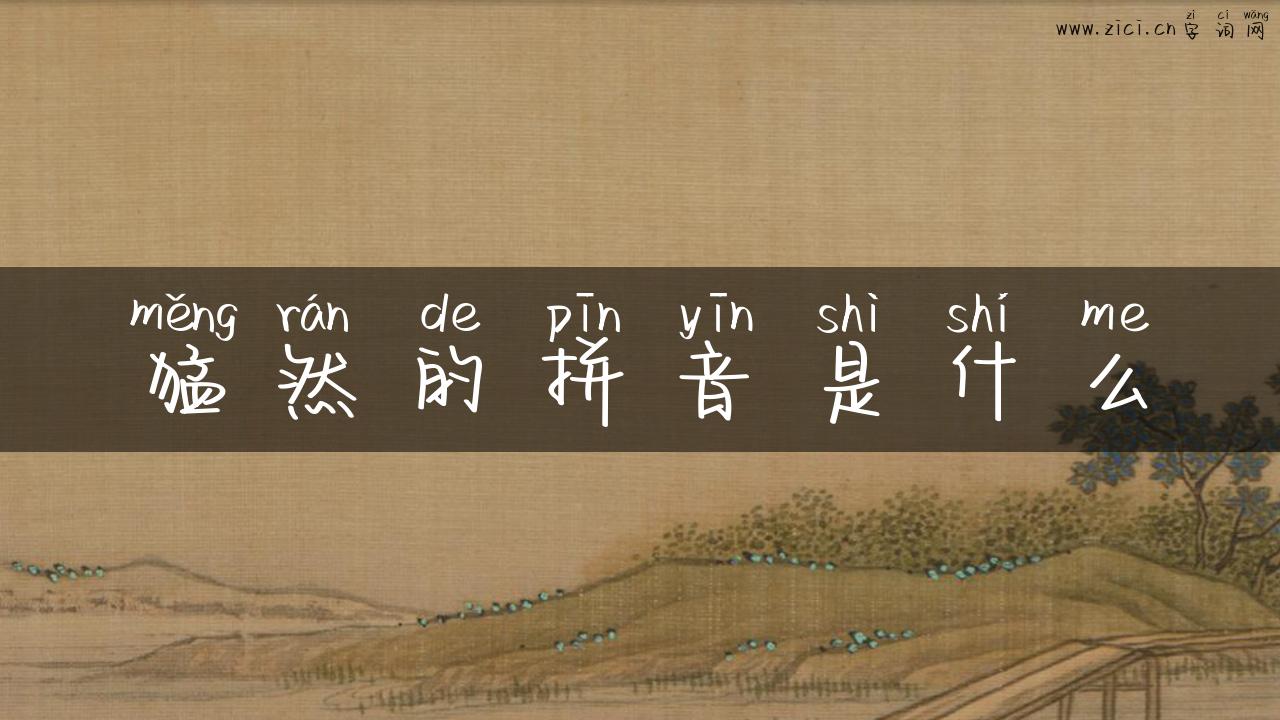 zì cí wǎng
www.zici.cn字词网
měng rán de pīn yīn shì shí me
猛然的拼音是什么